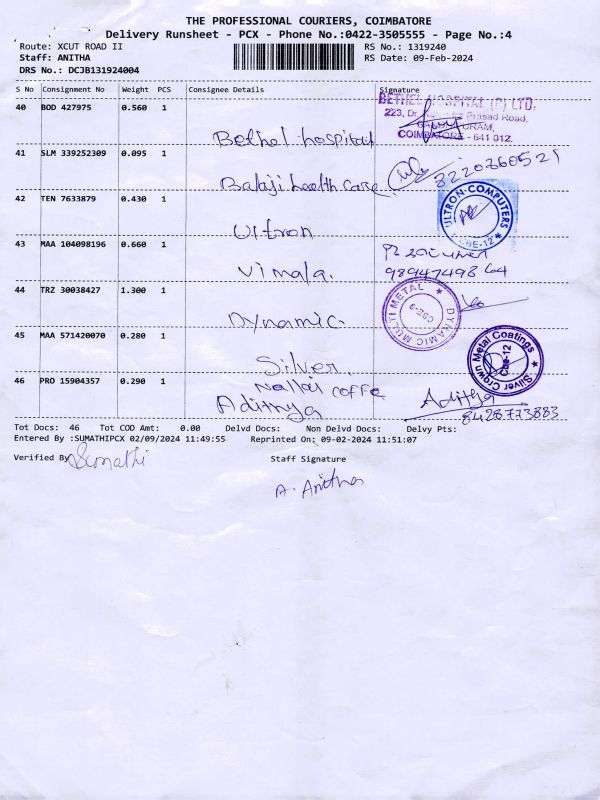 THE PROFESSIONAL COURIERS, COIMBATORE
Delivery Runsheet - PCX - Phone No.:0422-3505555 - Page No.:4
Route: XCUT ROAD II RS No.: 1319240
Staff: ANITHA RS Date: 09-Feb-2024
DRS No.: DCJB131924004
S No Consignment No Weight PCS Consignee Details Signature
40 BOD 427975 0.560 1
BETHEL HOSPITAL (P) LTD,
223, Dr. Prasad Road,
COIMBATORE - 641 012.
Bethel hospital
41 SLM 339252309 0.095 1
Balaji health care
42 TEN 7633879 0.430 1
ULTRON COMPUTERS
CBE-12
Ultron
43 MAA 104098196 0.660 1
Vimala.
44 TRZ 30038427 1.300 1
DYNAMIC MULTI METAL
Dynamic
45 MAA 571420070 0.280 1
Silver Crown Metal Coatings
Cbe-12
Silver
46 PRO 15904357 0.290 1
Adithya
Adithya
8428773883
Tot Docs: 46 Tot COD Amt: 0.00 Delvd Docs: Non Delvd Docs: Delvy Pts:
Entered By :SUMATHIPCX 02/09/2024 11:49:55 Reprinted On: 09-02-2024 11:51:07
Verified By Sumathi Staff Signature
A. Anitha